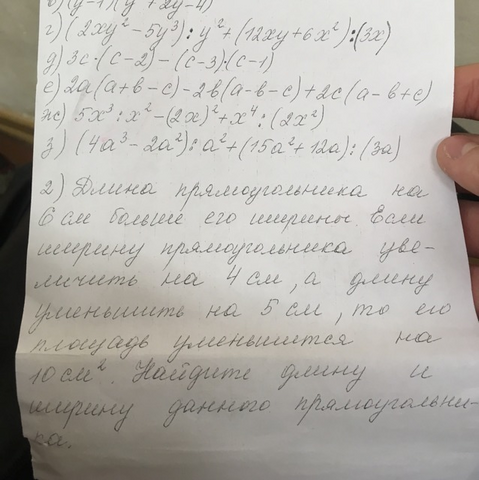 б) (y-1)(y²+2y-4)
г) (2xy² - 5y³) : y² + (12xy + 6x²) : (3x)
д) 3c·(c-2) - (c-3)·(c-1)
е) 2a(a+b-c) - 2b(a-b-c) + 2c(a-b+c)
ж) 5x³ : x² - (2x)² + x⁴ : (2x²)
з) (4a³ - 2a²) : a² + (15a² + 12a) : (3a)
2) Длина прямоугольника на
6 см больше его ширины. Если
ширину прямоугольника уве-
личить на 4 см, а длину
уменьшить на 5 см, то его
площадь уменьшится на
10 см². Найдите длину и
ширину данного прямоугольни-
ка.